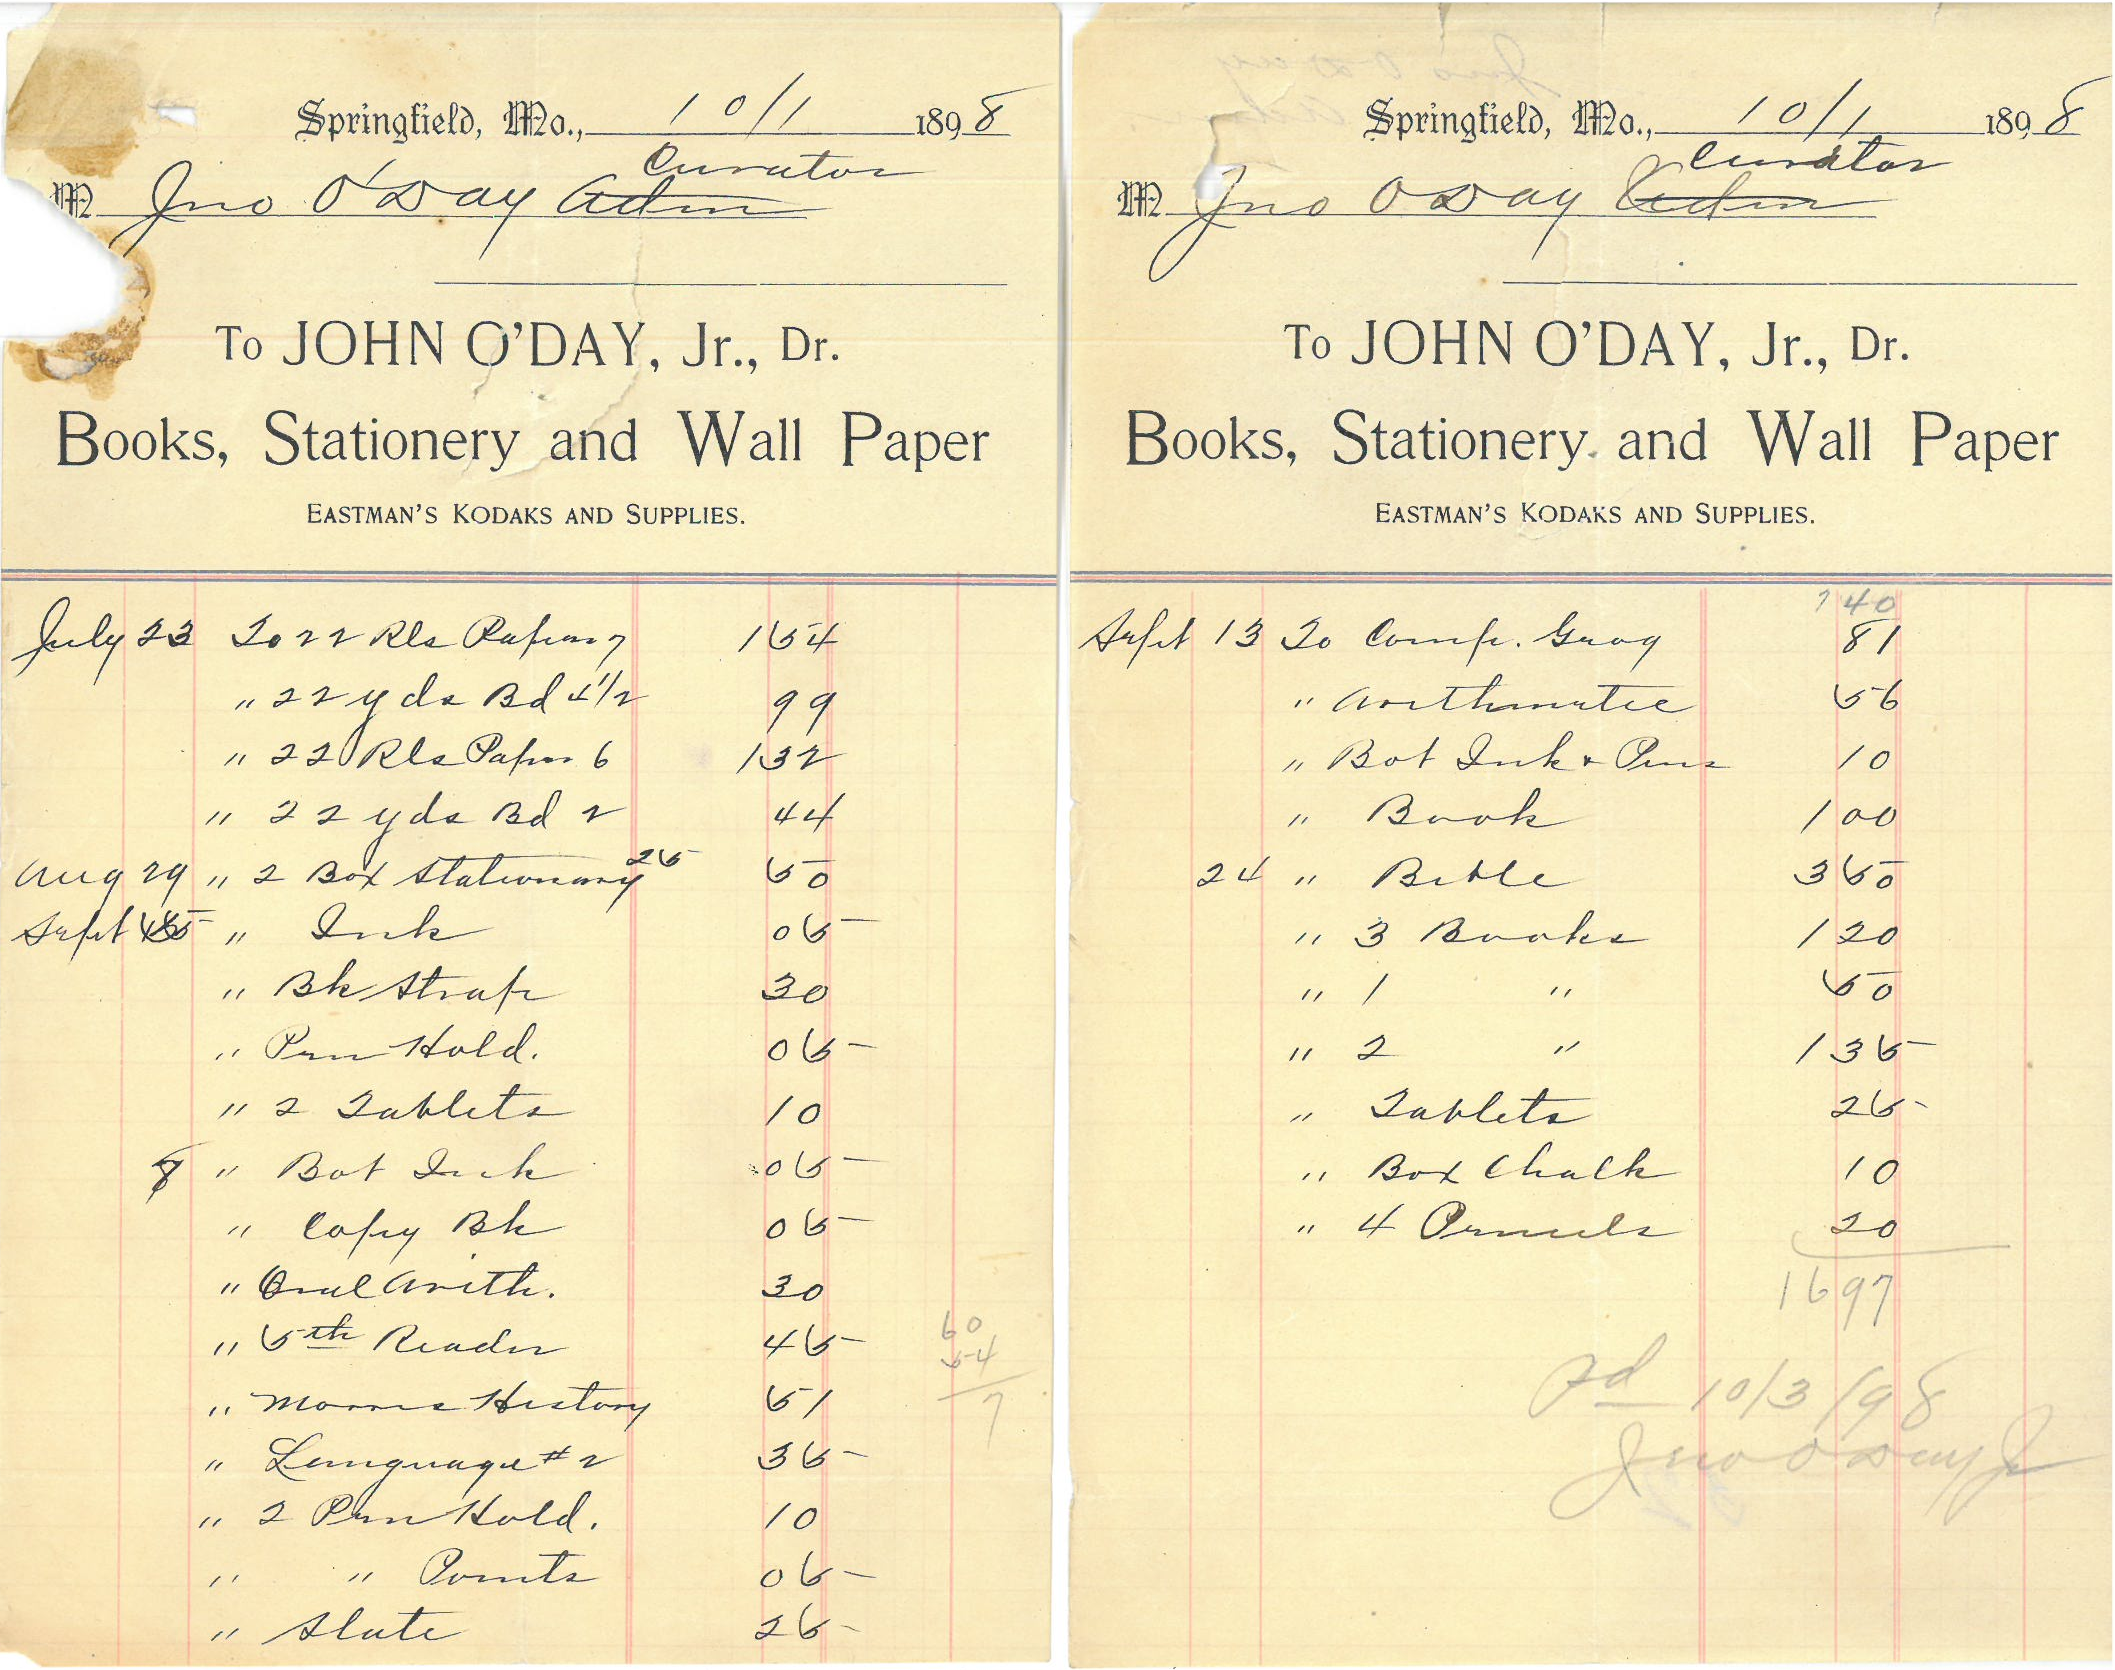 Springfield, Mo., 10/1 1898
Curator
M Jno O'Day Adm
To JOHN O'DAY, Jr., Dr.
Books, Stationery and Wall Paper
EASTMAN'S KODAKS AND SUPPLIES.
July 23 To 22 Rls Paper 7 1 54
" 22 yds Bd 4 1/2 99
" 22 Rls Paper 6 1 32
" 22 yds Bd 2 44
Aug 29 " 2 Box Stationary 25 50
Sept 5 " Ink 05
" Bk Strap 30
" Pen Hold. 05
" 2 Tablets 10
8 " Bot Ink 05
" Copy Bk 05
" Oral Arith. 30
" 5th Reader 45
" Morris History 51
" Language #2 35
" 2 Pen Hold. 10
" " Points 05
" Slate 25
60
54
7
Springfield, Mo., 10/1 1898
Curator
M Jno O'Day Adm
To JOHN O'DAY, Jr., Dr.
Books, Stationery and Wall Paper
EASTMAN'S KODAKS AND SUPPLIES.
7 40
Sept 13 To Comp. Grog 81
" Arithmatic 56
" Bot Ink + Pens 10
" Book 1 00
24 " Bible 3 50
" 3 Books 1 20
" 1 " 50
" 2 " 1 35
" Tablets 25
" Box Chalk 10
" 4 Pencils 20
16 97
Pd 10/3/98
Jno O'Day Jr